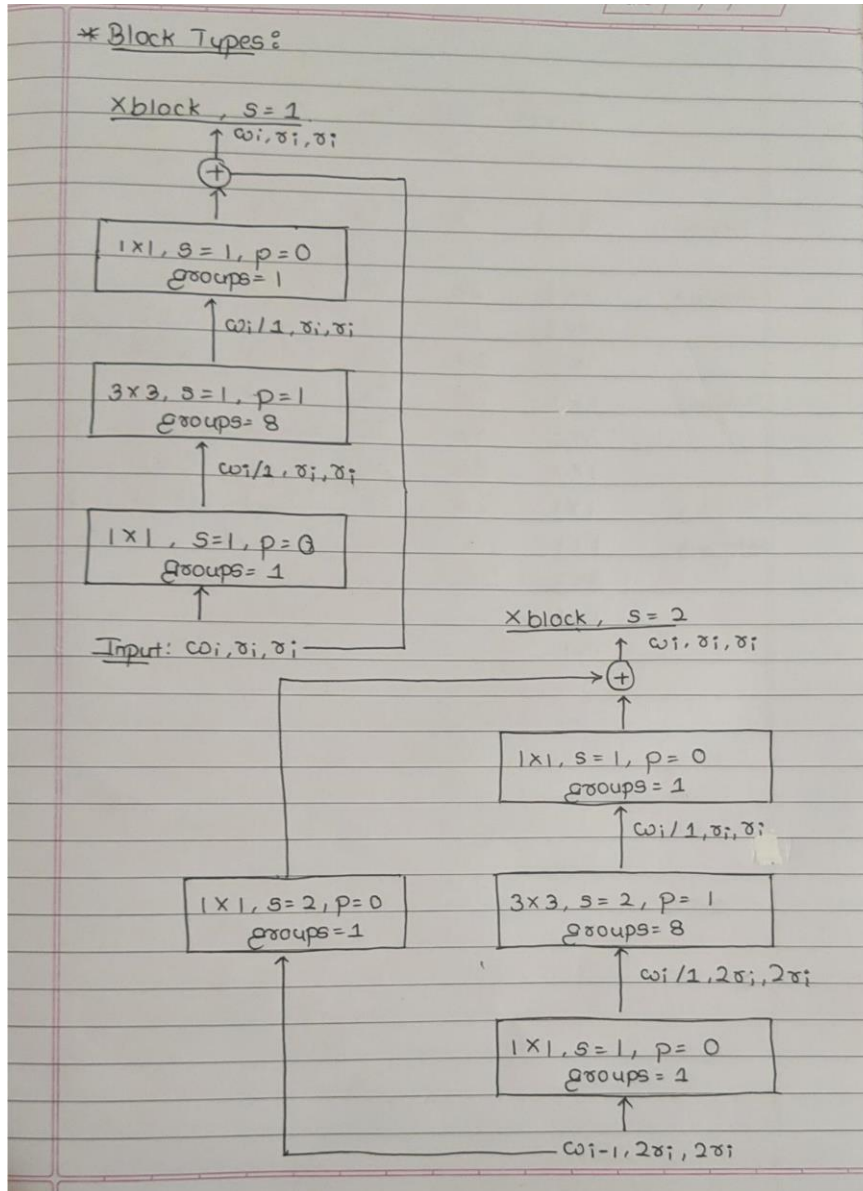 * Block Types:
Xblock, s=1
ωi, ri, ri
+
1×1, s=1, p=0
groups=1
ωi/1, ri, ri
3×3, s=1, p=1
groups=8
ωi/1, ri, ri
1×1, s=1, p=0
groups=1
Input: ωi, ri, ri
Xblock, s=2
ωi, ri, ri
+
1×1, s=1, p=0
groups=1
ωi/1, ri, ri
1×1, s=2, p=0
groups=1
3×3, s=2, p=1
groups=8
ωi/1, 2ri, 2ri
1×1, s=1, p=0
groups=1
ωi-1, 2ri, 2ri